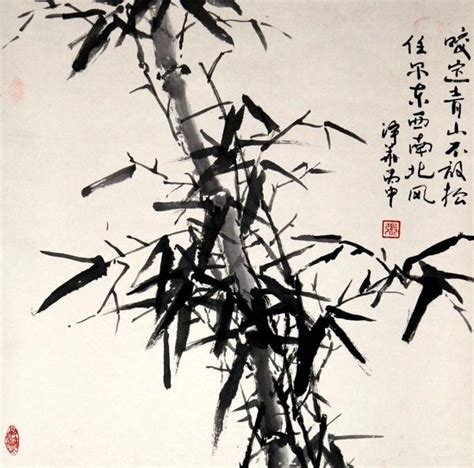 咬定青山不放松
任尔东西南北风
泽
丙申
張